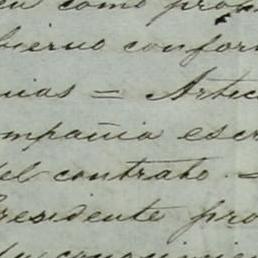 como pro
bierno confor
nias = Artic
ompañia escr
del contrato. =
Presidente pro